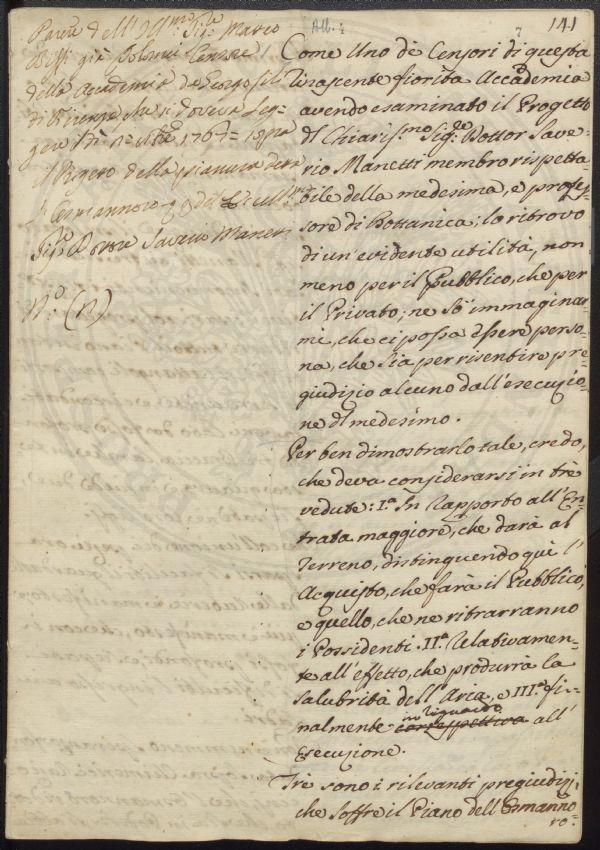 Alb. 1
7
141
Parere dell' Ill.mo Sig.re Marco
già Censore
della Accademia de Georgofili
di Firenze che si doveva Leg=
gere 1767 sopra
il Progetto della pianura del
Sig.re Dottore Saverio Manetti
N.o (n)
Come Uno de Censori di questa
rinascente fiorita Accademia
avendo esaminato il Progetto
dl Chiaris.mo Sig.re Dottor Save=
rio Manetti membro rispetta=
bile della medesima, e profes=
sore di Bottanica; lo ritrovo
di un'evidente utilità, non
meno per il Pubblico, che per
il Privato; ne sò immaginar=
mi, che ci possa essere perso=
na, che sia per risentire pre=
giudizio alcuno dall'esecuzio=
ne dl medesimo.
Per ben dimostrarlo tale, credo,
che deva considerarsi in trè
vedute: I.a In rapporto all'En=
trata maggiore, che darà al
Terreno, distinguendo quì l'
Acquisto, che farà il Pubblico,
e quello, che ne ritrarranno
i Possidenti. II.a Relativamen=
te all'effetto, che produrrà la
salubrità dell'Aria, e III.a fi=
nalmente in riguardo correspettiva all'
Esecuzione.
Trè sono i rilevanti pregiudizj,
che soffre il Piano dell'Ormanno=
ro=